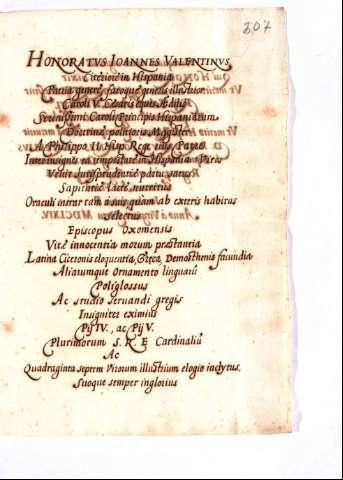 207
HONORATVS IOANNES VALENTINVS
Citeriore in Hispania
Patria genere
Caroli V. Cæsaris
Serenissimi Caroli Principis Hispaniarum
Doctrinæ politioris Magister
A Philippo II. Hisp. Rege
Inter insignes ea tempestate in Hispania Viros
Velut Iurisprudentiæ partu satus
Sapientiæ Lacte nutritus
Oraculi instar tam à suis, quàm ab exteris habitus
Selectus
Episcopus Oxomensis
Vitæ innocentia morum præstantia
Latina Ciceronis eloquentia, Græca Demosthenis facundia
Aliarumque Ornamento linguarū
Poliglossus
Ac studio seruandi gregis
Insigniter eximius
Pij IV., ac Pij V.
Plurimorum S. R. E Cardinaliū
Ac
Quadraginta septem Virorum illustrium elogio inclytus.
Suoque semper inglorius